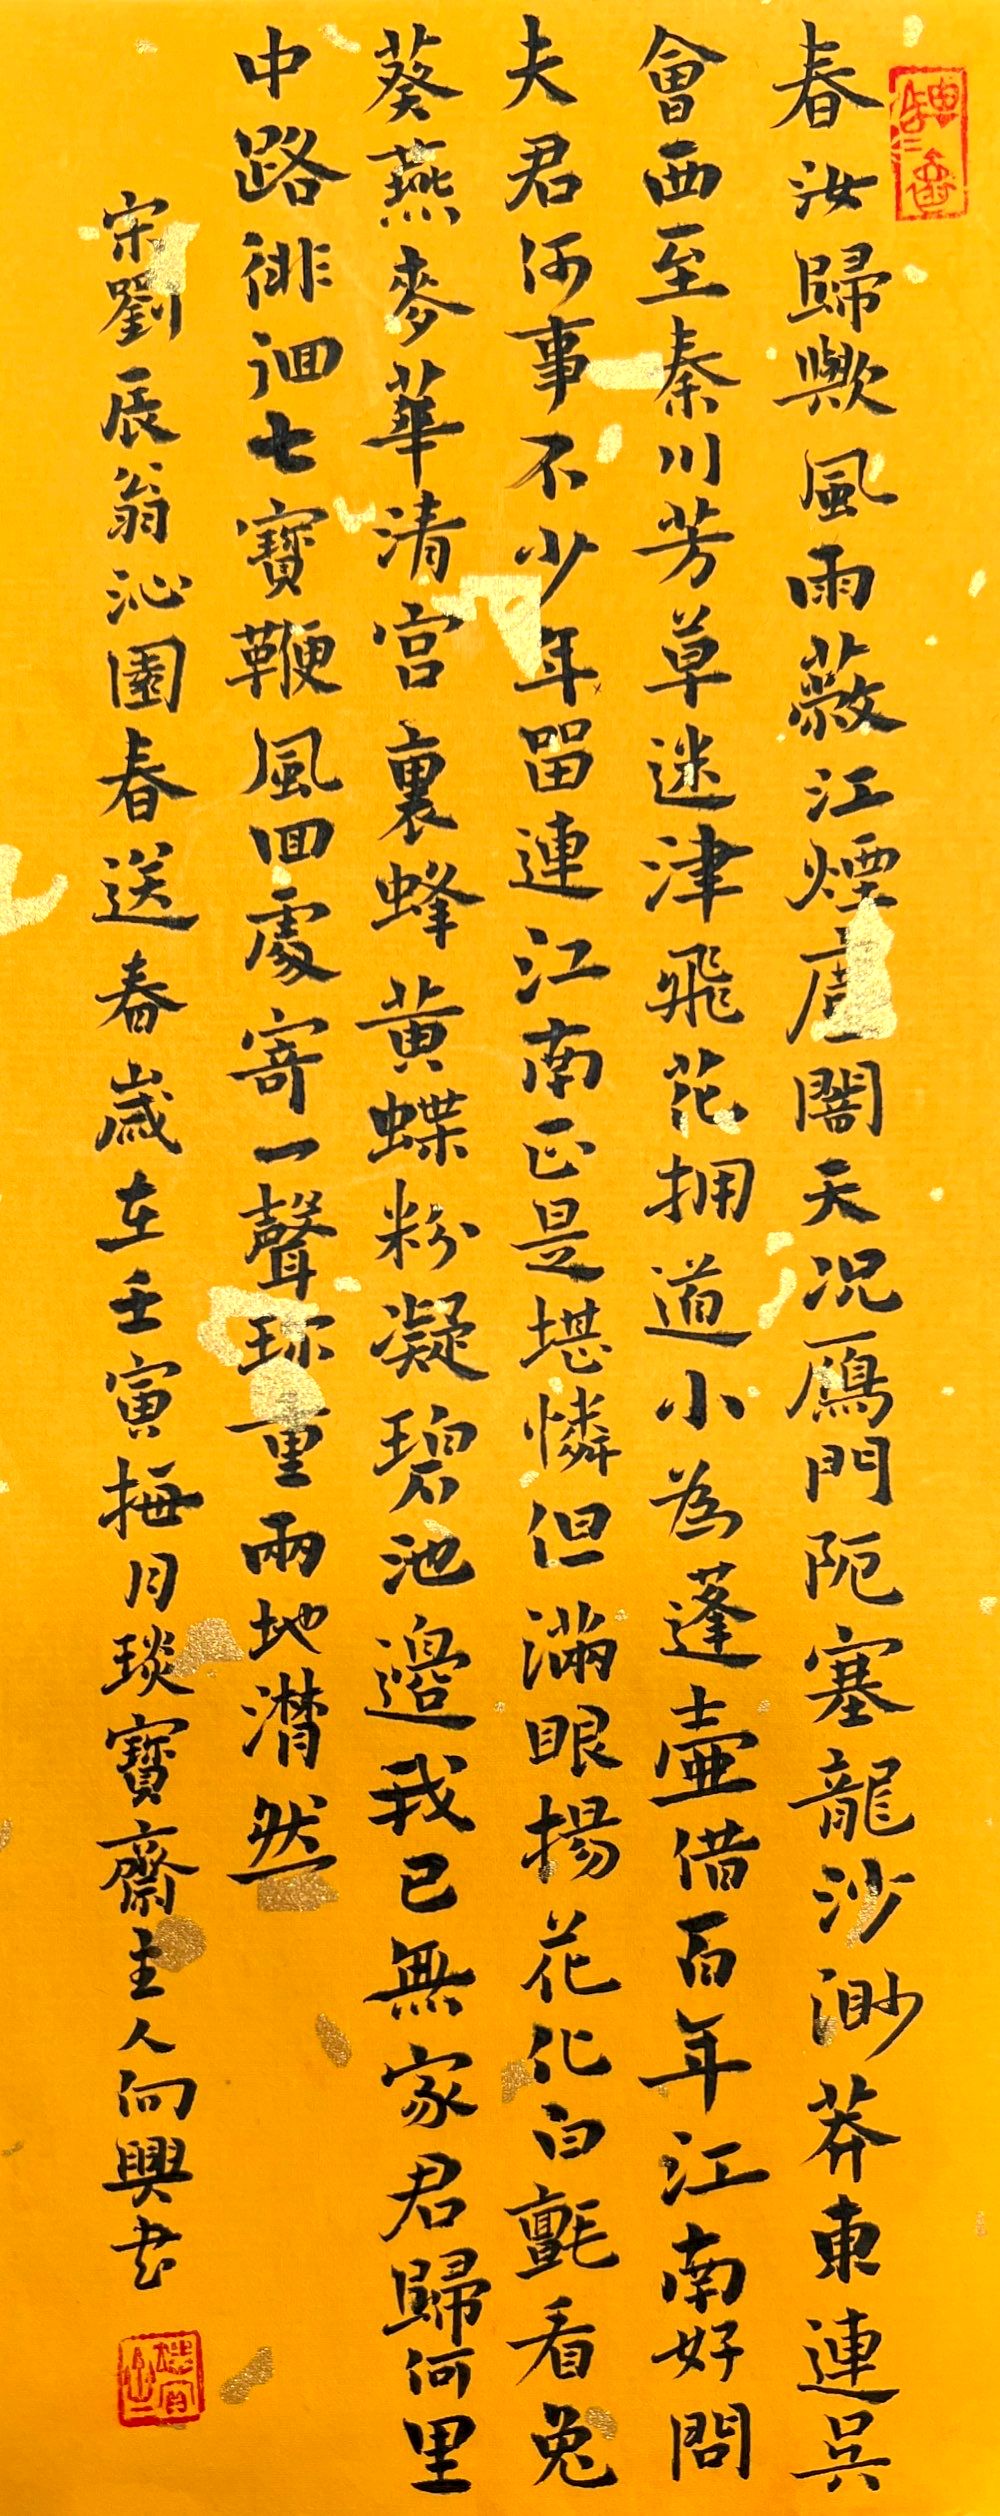 春汝歸歟風雨蔽江煙塵闇天况鴈門阨塞龍沙渺莽東連吳
會西至秦川芳草迷津飛花擁道小為蓬壺借百年江南好問
夫君何事不少年留連江南正是堪憐但滿眼揚花化白氈看兔
葵燕麥華清宮裏蜂黃蝶粉凝碧池邊我已無家君歸何里
中路徘徊七寶鞭風回處寄一聲珍重兩地潸然
宋劉辰翁沁園春送春歲在壬寅梅月琰寶齋主人向興书